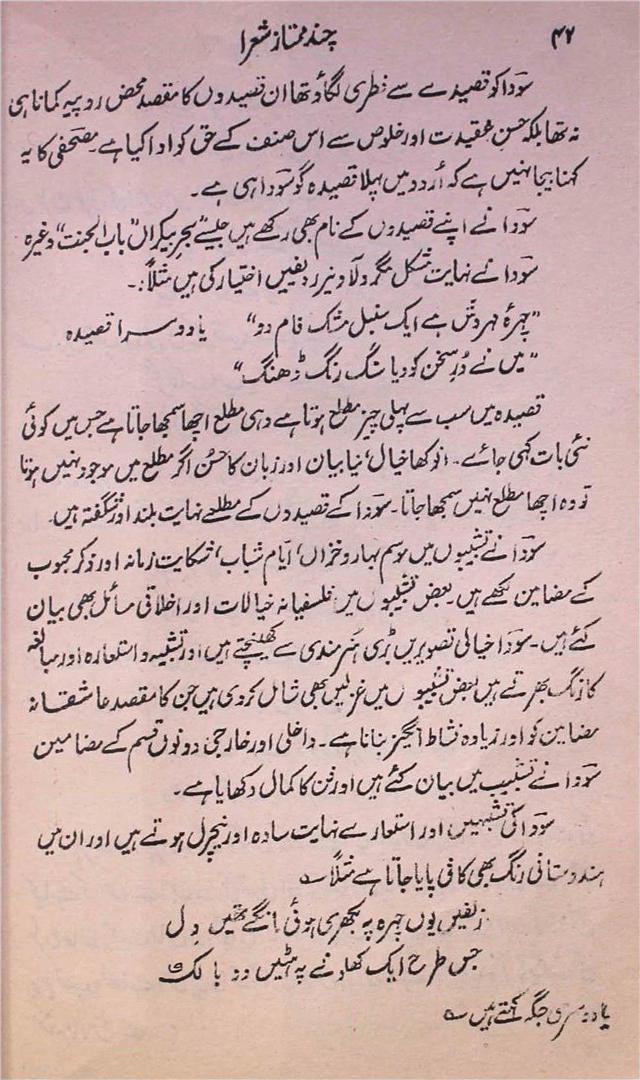 ۴۲ چند ممتاز شعرا
سوؔدا کو قصیدے سے فطری لگاؤ تھا ان قصیدوں کا مقصد محض روپیہ کمانا ہی
نہ تھا بلکہ حسن عقیدت اور خلوص سے اس صنف کے حق کو ادا کیا ہے۔ مصحفی کا یہ
کہنا بیجا نہیں ہے کہ اُردو میں پہلا قصیدہ گو سوؔدا ہی ہے۔
سوؔدا نے اپنے قصیدوں کے نام بھی رکھے ہیں جیسے "بحر بیکراں" "باب الجنت" وغیرہ
سوؔدا نے نہایت مشکل مگر دلآویز ردیفیں اختیار کی ہیں مثلاً:۔
"چہرۂ مہروش ہے ایک سنبل مشک فام دو" یا دوسرا قصیدہ
"میں نے دُرِ سخن کو دیا سنگ رنگ ڈھنگ"
قصیدہ میں سب سے پہلی چیز مطلع ہوتا ہے وہی مطلع اچھا سمجھا جاتا ہے جس میں کوئی
نئی بات کہی جائے۔ انوکھا خیال، نیا بیان اور زبان کا حسُن اگر مطلع میں موجود نہیں ہوتا
تو وہ اچھا مطلع نہیں سمجھا جاتا۔ سوؔدا کے قصیدوں کے مطلعے نہایت بلند اور شگفتہ ہیں۔
سوؔدا نے تشبیبوں میں موسم بہار و خزاں، ایام شباب، شکایت زمانہ اور ذکر محبوب
کے مضامین لکھے ہیں۔ بعض تشبیبوں میں فلسفیانہ خیالات اور اخلاقی مسائل بھی بیان
کئے ہیں۔ سوؔدا خیالی تصویریں بڑی ہنر مندی سے کھینچتے ہیں اور تشبیہ و استعارہ اور مبالغہ
کا رنگ بھرتے ہیں بعض تشبیبوں میں غزلیں بھی شامل کر دی ہیں جن کا مقصد عاشقانہ
مضامین کو اور زیادہ نشاط انگیز بنانا ہے۔ داخلی اور خارجی دونوں قسم کے مضامین
سوؔدا نے تشبیب میں بیان کئے ہیں اور فن کا کمال دکھایا ہے۔
سوؔدا کی تشبہیں اور استعارے نہایت سادہ اور نیچرل ہوتے ہیں اور ان میں
ہندوستانی رنگ بھی کافی پایا جاتا ہے مثلاً ؎
زلفیں یوں چہرہ پہ بکھری ہوئی مانگے تھیں دل
جس طرح ایک کھلونے پہ ہٹیں دو بالک
یا دوسری جگہ کہتے ہیں ؎